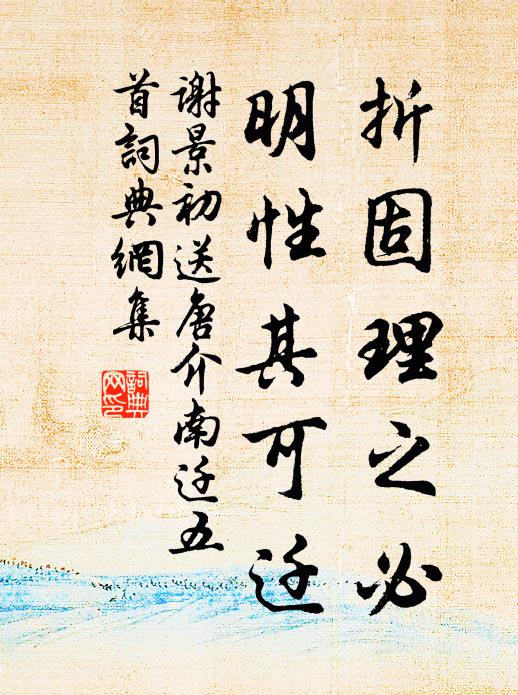 折固理之必
明性其可迁
谢景初送唐介南迁五
首词典网集
詞典
网印